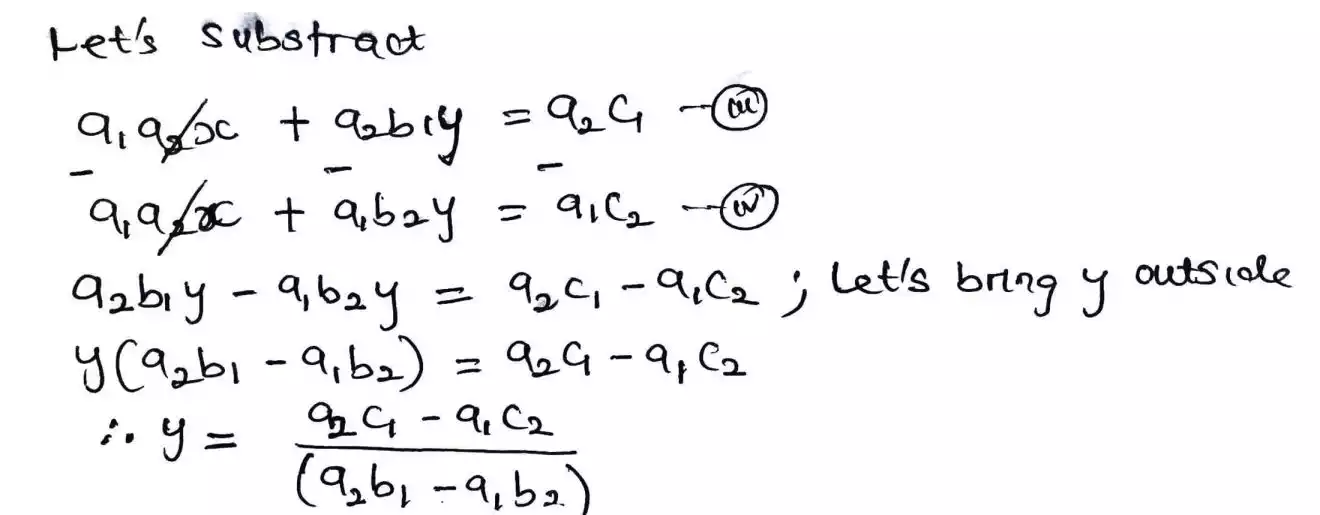 Let's substract
a₁a₂x + a₂b₁y = a₂c₁ — (iii)
- - -
a₁a₂x + a₁b₂y = a₁c₂ — (iv)
a₂b₁y - a₁b₂y = a₂c₁ - a₁c₂ ; Let's bring y outside
y(a₂b₁ - a₁b₂) = a₂c₁ - a₁c₂
∴ y = a₂c₁ - a₁c₂
(a₂b₁ - a₁b₂)